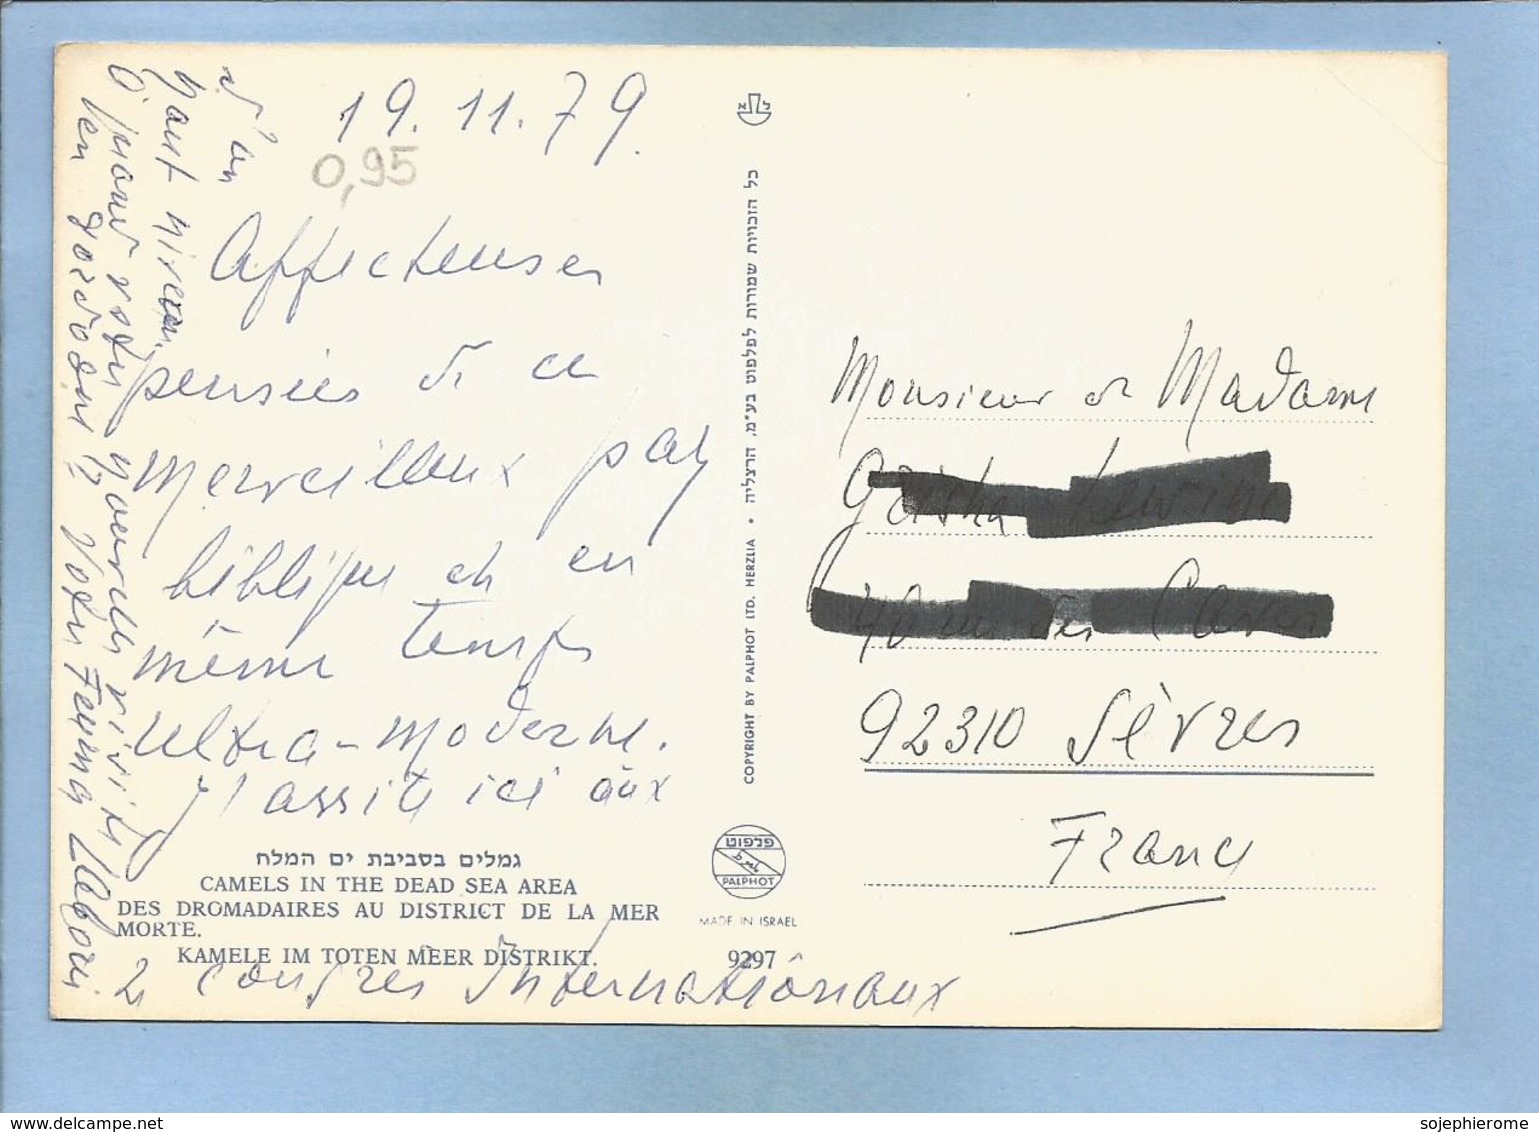 19.11.79.
0,95
Affectueuses
pensées de ce
merveilleux pays
biblique et en
même temps
ultra-moderne.
J'assiste ici aux
2 congrès internationaux
d'un
haut niveau.
À quand votre nouvelle visite
? Votre
גמלים בסביבת ים המלח
CAMELS IN THE DEAD SEA AREA
DES DROMADAIRES AU DISTRICT DE LA MER
MORTE.
KAMELE IM TOTEN MEER DISTRIKT.
כל הזכויות שמורות לפלפוט בע"מ, הרצליה • COPYRIGHT BY PALPHOT LTD. HERZLIA
פלפוט
PALPHOT
MADE IN ISRAEL
9297
Monsieur et Madame
92310 Sèvres
France
sojephierome
www.delcampe.net